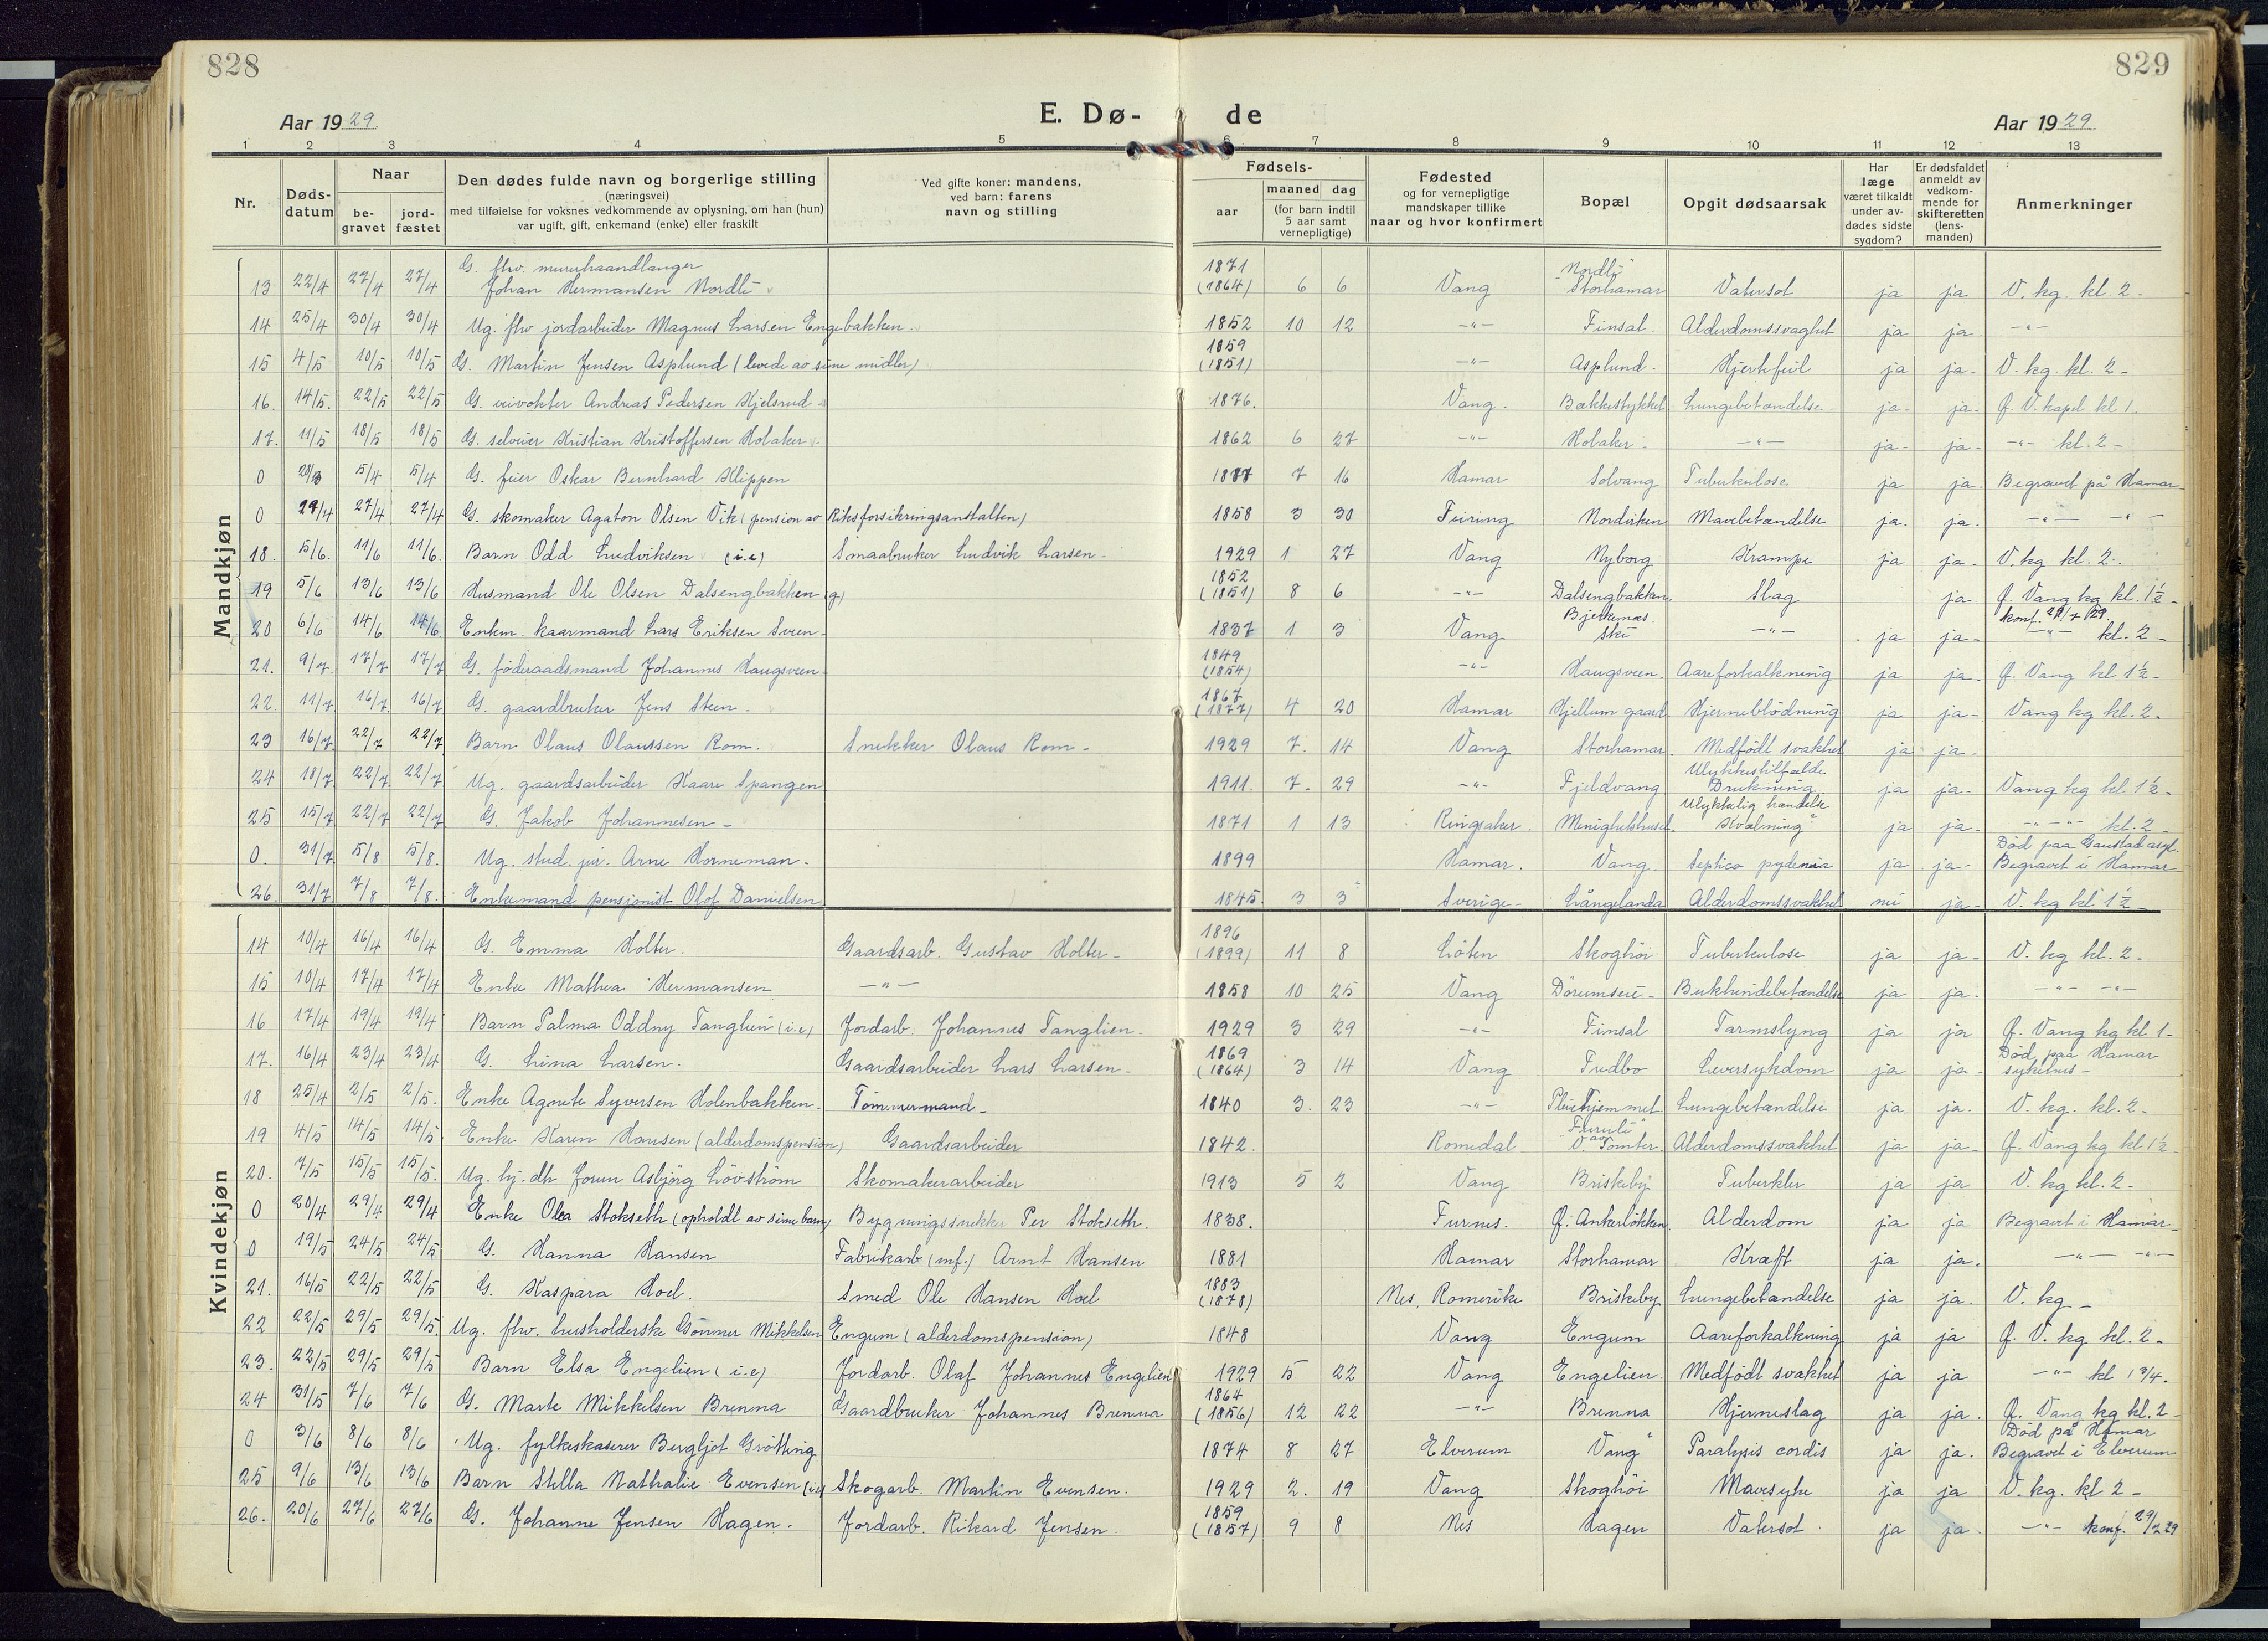 828
829
Aar 1929.
E. Dø-
de
Aar 1929.
1 2 3 4 5 6 7 8 9 10 11 12 13
Nr.
Døds-
datum
Naar
be-
gravet
jord-
fæstet
Den dødes fulde navn og borgerlige stilling
(næringsvei)
med tilføielse for voksnes vedkommende av oplysning, om han (hun)
var ugift, gift, enkemand (enke) eller fraskilt
Ved gifte koner: mandens,
ved barn: farens
navn og stilling
Fødsels-
aar
maaned dag
(for barn indtil
5 aar samt
vernepligtige)
Fødested
og for vernepligtige
mandskaper tillike
naar og hvor konfirmert
Bopæl
Opgit dødsaarsak
Har
læge
været tilkaldt
under av-
dødes sidste
sygdom?
Er dødsfaldet
anmeldt av
vedkom-
mende for
skifteretten
(lens-
manden)
Anmerkninger
Mandkjøn
G. fhv. murerhaandlanger 1871 "Nordli"
13 22/4 27/4 27/4 Johan Hermansen Nordli (1864) 6 6 Vang Storhamar Vatersot ja ja V. kg. kl. 2-
14 25/4 30/4 30/4 Ug. fhv jordarbeider Magnus Larsen Engebakken. 1852 10 12 -"- Finsal. Alderdomssvaghet ja ja -"-
1859
15 4/5 10/5 10/5 G. Martin Jensen Asplund (levede av sine midler) (1851) -"- Asplund. Hjertefeil ja ja- V. kg. kl. 2-
16. 14/5. 22/5 22/5 G. veivokter Andreas Pedersen Kjelsrud- 1876. Vang. Bækkestykket Lungebetændelse ja- ja- Ø. V. kapel kl 1.
17. 11/5 18/5 18/5 G. selveier Kristian Kristoffersen Holaker- 1862 6 27 -"- Holaker- -"- ja- ja- -"- kl. 2-
0 5/4 5/4 G. feier Oskar Bernhard Klippen 1877 7 16 Hamar Solvang Tuberkulose ja ja. Begravet på Hamar-
0 27/4 27/4 G. skomaker Agaton Olsen Vik (pension av Riksforsikringsanstalten) 1858 3 30 Feiring Nordviken Mavebetændelse ja. ja. -"- -"-
18. 5/6. 11/6 11/6. Barn Odd Ludviksen (i.e) Smaabruker Ludvik Larsen- 1929 1 27 Vang Nyborg Krampe ja ja- V. kg kl. 2-
1852
19 5/6 13/6 13/6 Husmand Ole Olsen Dalsengbakken (g.) (1851) 8 6 -"- Dalsengbakken Slag ja Ø. Vang kg kl. 1½-
Bjerkenæs. konf. 29/7 29.
20 6/6 14/6 14/6 Enkm. kaarmand Lars Eriksen Sveen- 1837 1 3 Vang Ski -"- ja ja- -"- kl. 2-
1849
21. 9/7. 17/7 17/7 G. føderaadsmand Johannes Haugsveen- (1854) -"- Haugsveen. Aareforkalkning ja ja- Ø. Vang kl 1½-
1867
22. 11/7 16/7. 16/7 G. gaardbruker Jens Steen- (1877) 4 20 Hamar Hjellum gaard Hjerneblödning ja ja- Vang kg kl. 2.
23 16/7. 22/7 22/7 Barn Olaus Olaussen Rom. Snekker Olaus Rom- 1929 7. 14 Vang Storhamar. Medfödt svakhet ja ja-
Ulykkestilfælde
24 18/7 22/7 22/7 Ug. gaardsarbeider Kaare Spangen 1911. 7. 29 -"- Fjeldvang Drukning ja ja- Vang kg kl 1½-
Ulykkelig hændelse
25 15/7 22/7 22/7 G. Jakob Johannesen- 1871 1 13 Ringsaker. Menighetshuset. Kvælning" ja ja- -"- kl. 2-
Død paa Gaustad asyl.
0. 31/7 5/8 5/8. Ug. stud. jur. Arne Horneman. 1899 Hamar. Vang. Septico ja ja- Begravet i Hamar
26. 31/7 7/8 7/8. Enkemand pensjonist Olof Danielsen 1845. 3 3 Sverige- Långelanda Alderdomssvakhet nei ja- V. kg kl 1½-
Kvindekjøn
1896
14 10/4 16/4 16/4 G. Emma Holter. Gaardsarb. Gustav Holter- (1899) 11 8 Löten Skoghöi Tuberkulose ja ja- V. kg kl. 2-
15 10/4 17/4 17/4 Enke Mathea Hermansen -"- 1858 10 25 Vang Dørumseie- Bukhindebetændelse ja ja. -"- -"-
16 17/4 19/4 19/4 Barn Palma Oddny Tanglien (i.e) Jordarb. Johannes Tanglien- 1929 3 29 -"- Finsal Tarmslyng ja ja Ø. Vang kg kl 1-
1869 Død paa Hamar
17. 16/4 23/4 23/4 G. Lina Larsen. Gaardsarbeider Lars Larsen- (1864) 3 14 Vang Fredbo Leversykdom ja ja- sykehus-
18 25/4 2/5 2/5. Enke Agnete Syversen Holenbakken. Tömmermand- 1840 3. 23 -"- Pleiehjemmet Lungebetændelse ja ja. V. kg. kl. 2-
"Furuli"
19 4/5 14/5 14/5 Enke Karen Hansen (alderdomspension) Gaardsarbeider 1842. Romedal V. av Tomter. Alderdomssvakhet ja ja- Ø. Vang kg kl 1½
20. 7/5 15/5 15/5. Ug. hj. dtr Jorun Asbjörg Lövström Skomakerarbeider 1913 5 2 Vang Briskeby Tuberkler ja ja V. kg kl. 2-
0 20/4 29/4 29/4 Enke Olea Stokseth (opholdt av sine barn) Bygningssnekker Per Stokseth. 1838. Furnes. Ø. Ankerløkken Alderdom ja ja Begravet i Hamar-
0 19/5 24/5 24/5 G. Hanna Hansen Fabrikarb (mf.) Arnt Hansen 1881 Hamar Storhamar Kræft ja ja. -"- -"-
1883
21. 16/5 22/5 22/5 G. Kaspara Hoel. Smed Ole Hansen Hoel (1878) Nes, Romerike Briskeby Lungebetændelse ja ja. V. kg-
22 22/5 29/5 29/5. Ug. fhv. husholderske Gunner Mikkelsen Engum (alderdomspension) 1848 Vang Engum Aareforkalkning ja ja Ø. V. kg kl. 2-
23. 22/5 29/5 29/5 Barn Elsa Engelien (i.e) Jordarb. Olaf Johannes Engelien 1929 5 22 Vang Engelien. Medfödt svakhet ja ja -"- kl 1¾.
1864
24 31/5 7/6 7/6 G. Marte Mikkelsen Brenna Gaardbruker Johannes Brenna (1856) 12 22 -"- Brenna Hjerneslag ja ja. Ø. Vang kg kl. 2-
Død på Hamar
0 3/6 8/6 8/6 Ug. fylkeskaserer Bergljot Grötting 1874 8 27 Elverum Vang" Paralysis cordis ja ja. Begravet i Elverum
25 9/6 13/6 13/6 Barn Stella Nathalie Evensen (i.e) Skogarb. Martin Evensen. 1929 2. 19 Vang Skoghöi Mavesyke ja ja V. kg. kl 2-
1859
26. 20/6 27/6 27/6 G. Johanne Jensen Hagen. Jordarb. Rikard Jensen. (1857) 9 8 Nes Hagen Vatersot. ja ja. -"- konf. 29/7 29